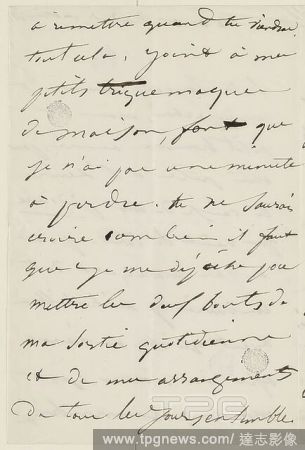 à remettre quand tu viendras
tout cela, joint à mes
ptits trique maque
de maison, font que
je n'ai pas une minute
à perdre. tu ne saurois
croire combien il faut
que je me dépêche pour
mettre les deux bouts de
ma sortie quotidienne
et de mes arrangements
de tous les jours ensemble.
TPG
www.tpgnews.com/達志影像